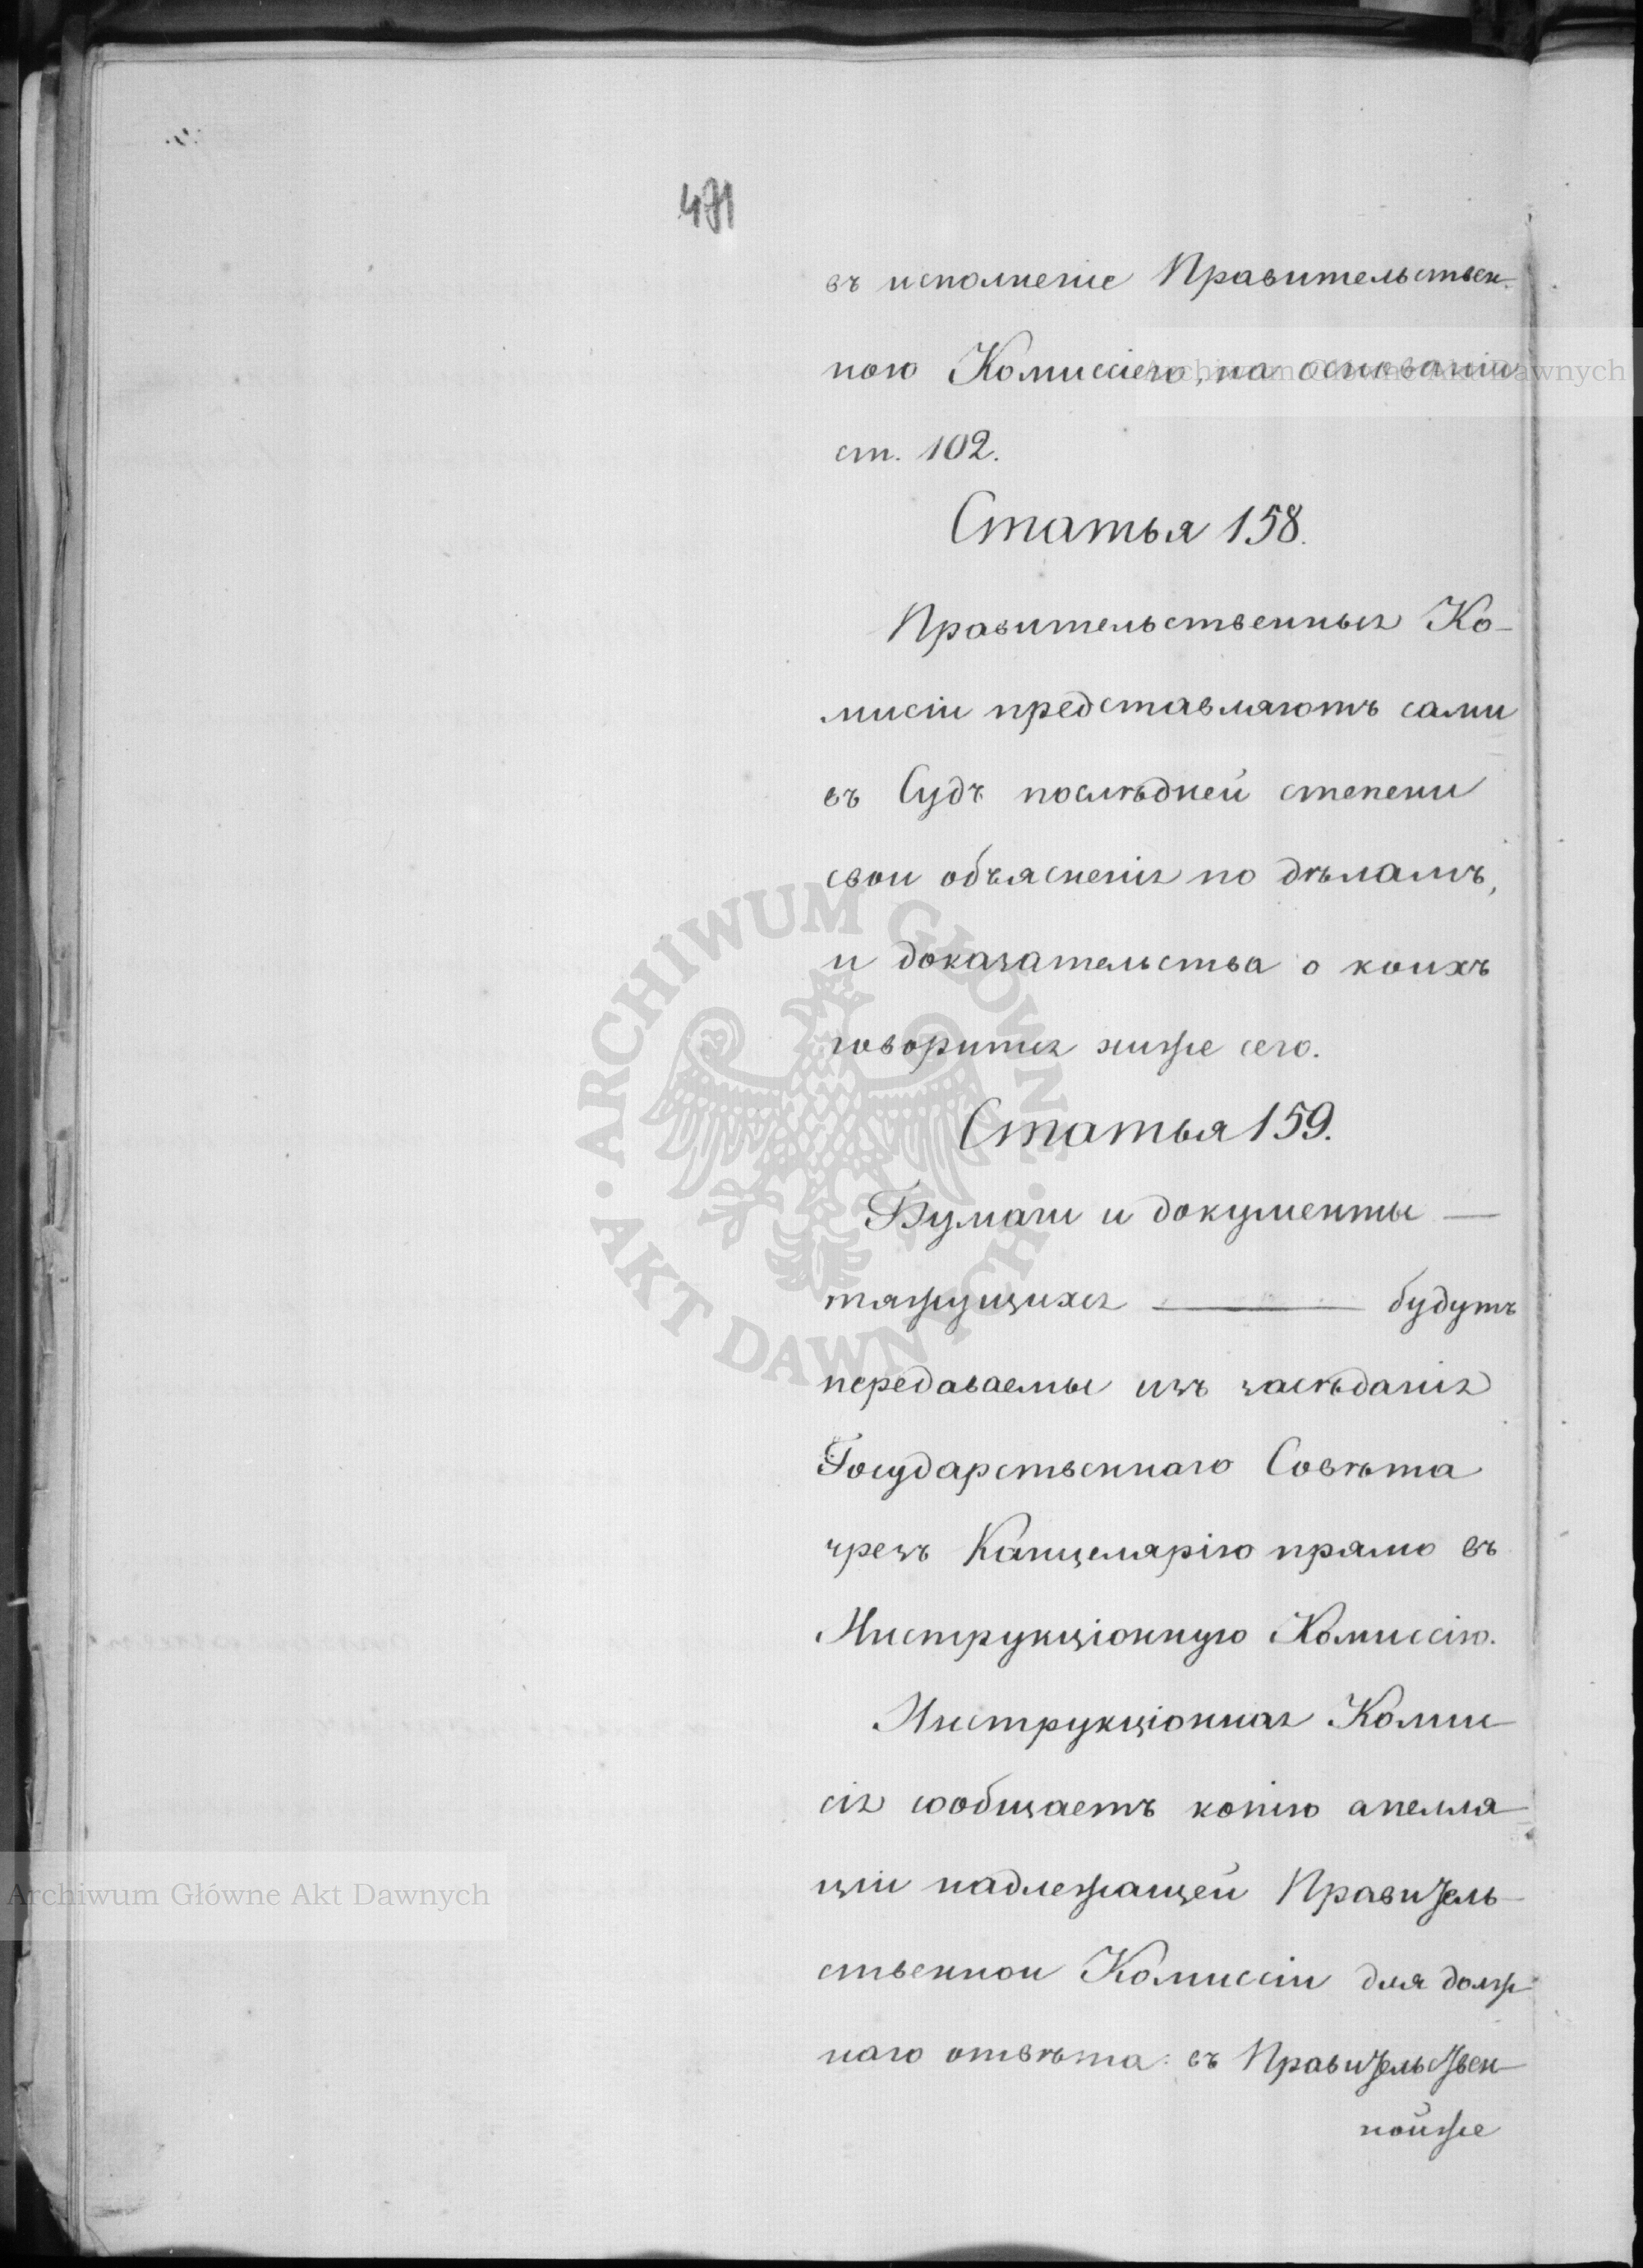 471
въ исполненіе Правительствен-
ною Комиссіею, на основаніи
ст. 102.
Статья 158.
Правительственныя Ко-
мисіи представляютъ сами
въ Судъ послѣдней степени
свои объясненія по дѣламъ,
и доказательства о коихъ
говорится ниже сего.
Статья 159.
Бумаги и документы —
тяжущихся ——— будутъ
передаваемы изъ засѣданія
Государственнаго Совѣта
чрезъ Канцелярію прямо въ
Инструкціонную Комиссію.
Инструкціонная Комми-
сія сообщаетъ копію апелля-
ціи надлежащей Правитель-
ственной Комиссіи для долж-
наго отвѣта: въ Правительствен-
нойже
Archiwum Główne Akt Dawnych
Archiwum Główne Akt Dawnych
ARCHIWUM GŁÓWNE · AKT DAWNYCH ·